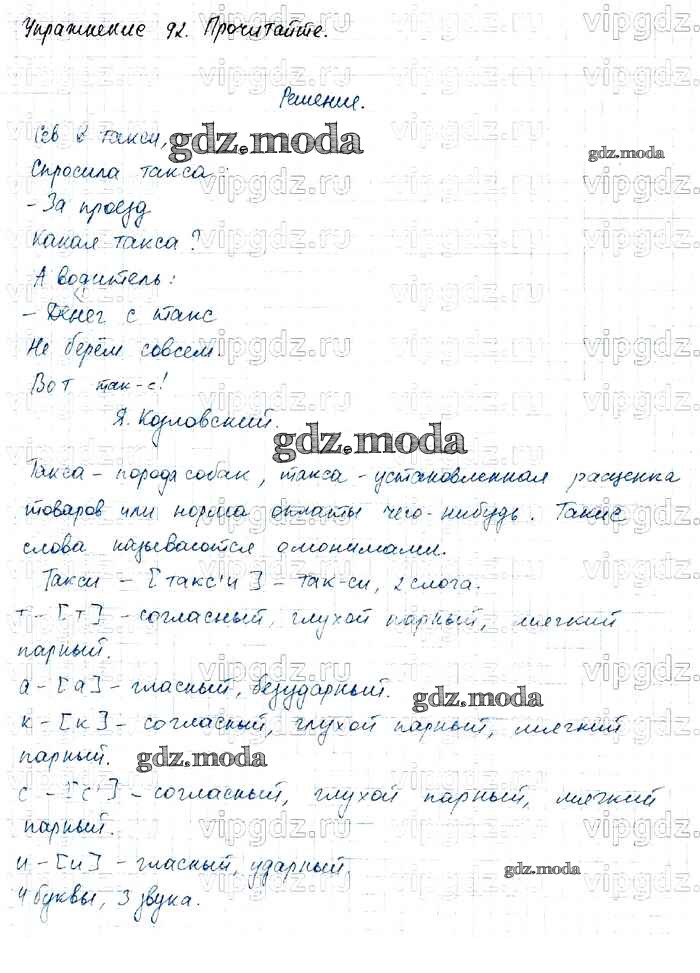 Упражнение 92. Прочитайте.
Решение.
Сев в такси,
Спросила такса:
- За проезд
Какая такса?
А водитель:
- Денег с такс
Не берём совсем.
Вот так-с!
Я. Козловский.
Такса - порода собак, такса - установленная расценка
товаров или норма оплаты чего-нибудь. Такие
слова называются омонимами.
Такси - [такс'и] - так-си, 2 слога.
т - [т] - согласный, глухой парный, мягкий
парный.
а - [а] - гласный, безударный.
к - [к] - согласный, глухой парный, мягкий
парный.
с - [с'] - согласный, глухой парный, мягкий
парный.
и - [и] - гласный, ударный.
4 буквы, 3 звука.
gdz.moda
gdz.moda
gdz.moda
gdz.moda
gdz.moda
gdz.moda
vipgdz.ru